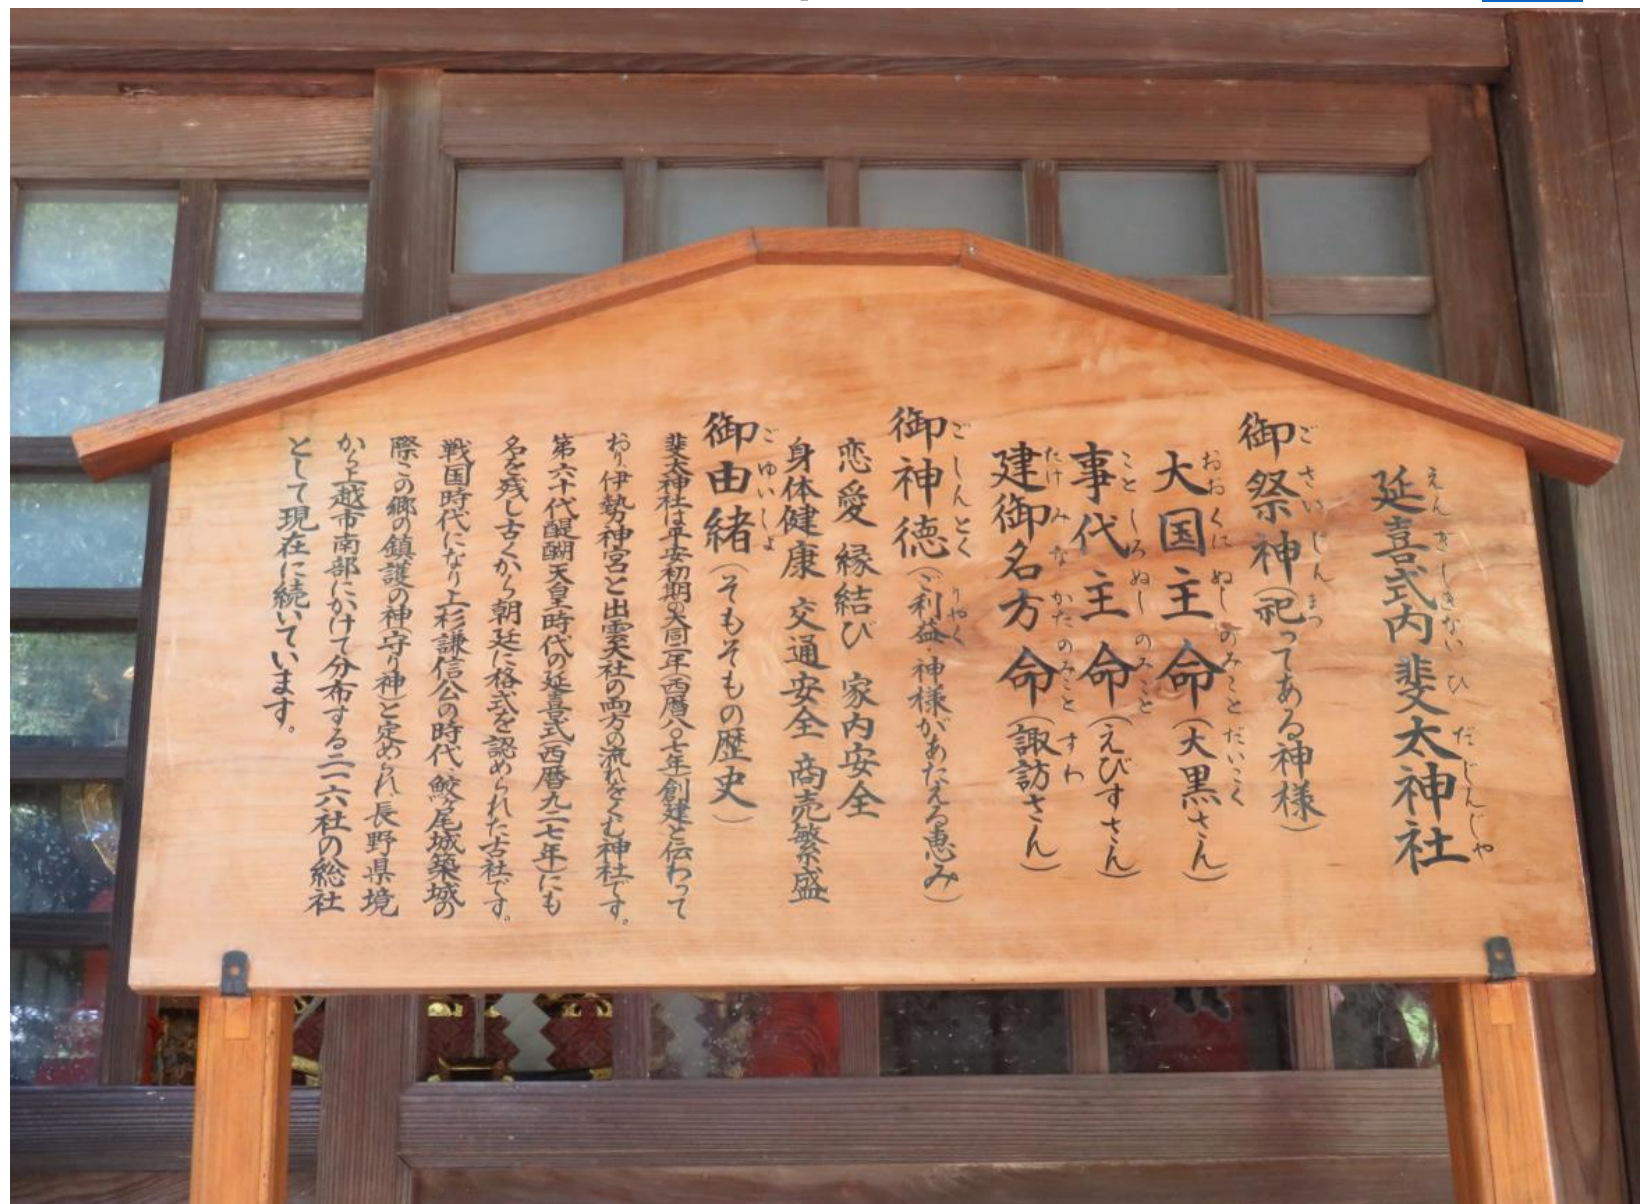 延喜式内斐太神社
えんぎしきないひだじんじゃ
御祭神(祀ってある神様)
ごさいじんまつ
大国主命(大黒さん)
おおくにぬしのみことだいこく
事代主命(えびすさん)
ことしろぬしのみこと
建御名方命(諏訪さん)
たけみなかたのみことすわ
御神徳(ご利益・神様があたえる恵み)
ごしんとくりやく
恋愛 縁結び 家内安全
身体健康 交通安全 商売繁盛
御由緒(そもそもの歴史)
ごゆいしょ
斐太神社は平安初期の大同二年(西暦八〇七年)創建と伝わって
おり、伊勢神宮と出雲大社の両方の流れをくむ神社です。
第六十代醍醐天皇時代の延喜式(西暦九二七年)にも
名を残し古くから朝廷に格式を認められた古社です。
戦国時代になり上杉謙信公の時代、鮫ヶ尾城築城の
際この郷の鎮護の神(守り神)と定められ、長野県境
から上越市南部にかけて分布する二一六社の総社
として現在に続いています。